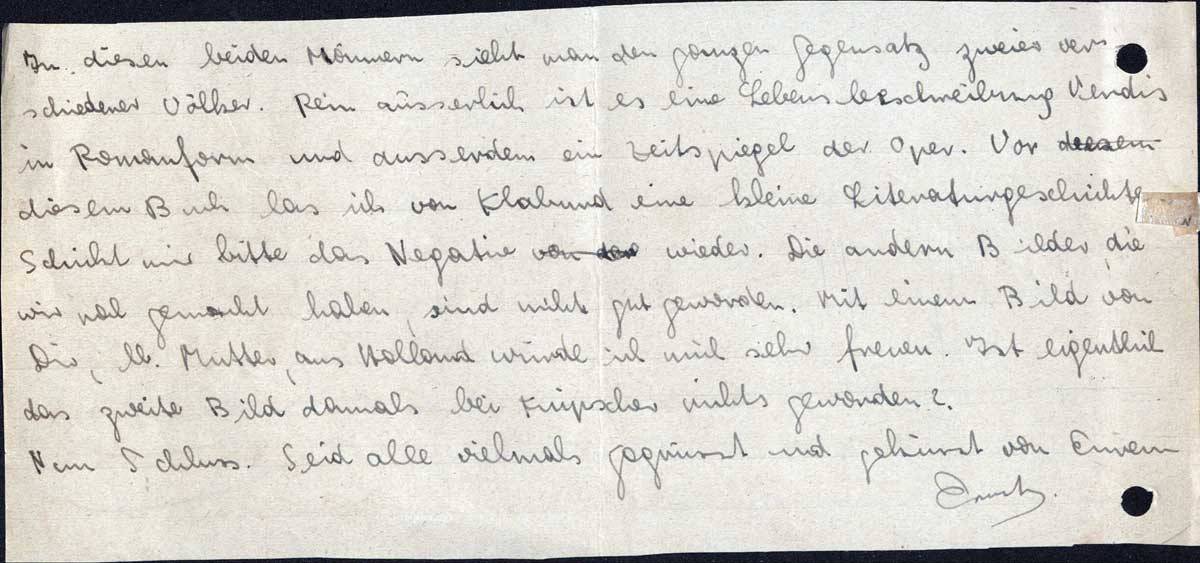 In diesen beiden Männern sieht man den ganzen Gegensatz zweier ver-
schiedener Völker. Rein äusserlich ist es eine Lebensbeschreibung Verdis
in Romanform und ausserdem ein Zeitspiegel der Oper. Vor diesem
diesem Buch las ich von Klabund eine kleine Literaturgeschichte
Schickt mir bitte das Negativ von der wieder. Die andern Bilder, die
wir mal gemacht haben, sind nicht gut geworden. Mit einem Bild von
Dir, lb. Mutter, aus Holland würde ich mich sehr freuen. Ist eigentlich
das zweite Bild damals bei nichts geworden?
Nun Schluss. Seid alle vielmals gegrüsst und geküsst von Eurem
Ernst.